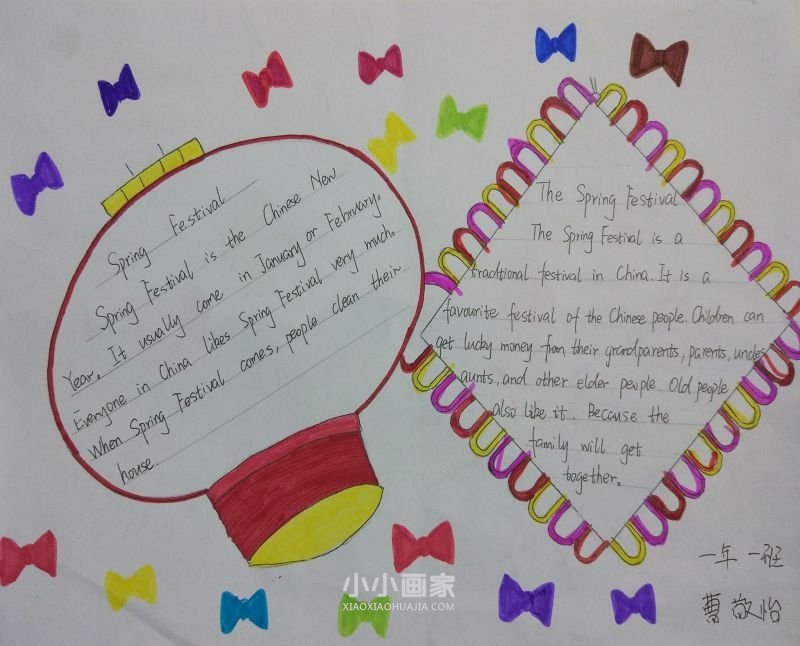 Spring Festival
Spring Festival is the Chinese New
Year. It usually come in January or February.
Everyone in China likes Spring Festival very much.
When Spring Festival comes, people clean their
house.
The Spring Festival
The Spring Festival is a
tradtional festival in China. It is a
favourite festival of the Chinese people. Children can
get lucky money from their grandparents, parents, uncles
aunts, and other elder people. Old people
also like it. Because the
family will get
together.
一年 一班
曹敬怡
小小画家
XIAOXIAOHUAJIA.COM